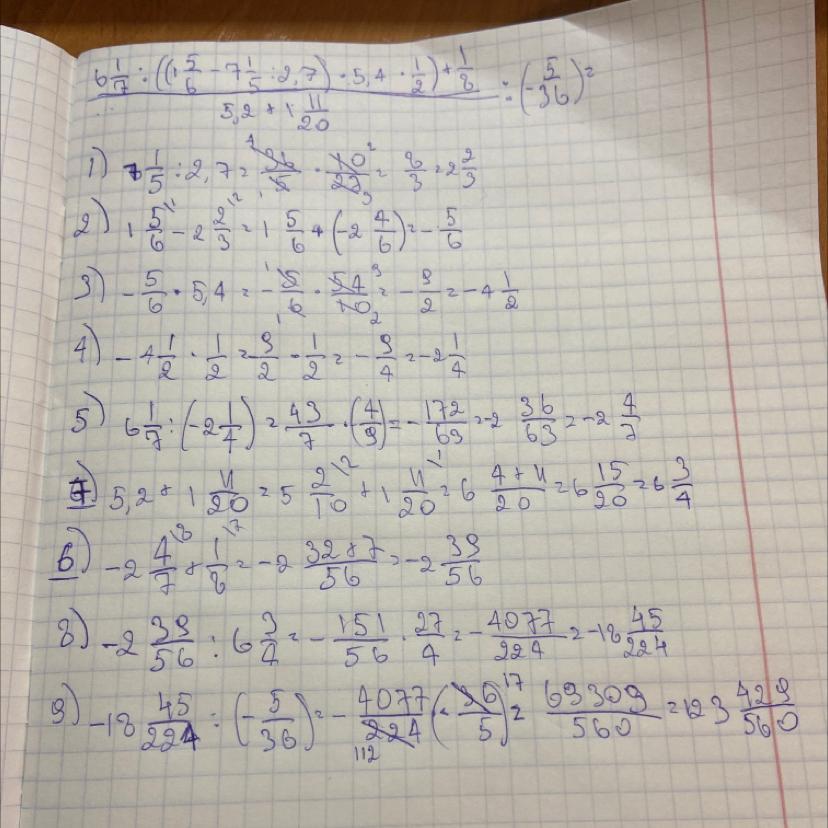 6 1/7 : ((1 5/6 - 7 1/5 : 2,7) · 5,4 · 1/2) + 1/8 : (- 5/36) =
5,2 + 1 11/20
1) 7 1/5 : 2,7 = 36/5 · 10/27 = 8/3 = 2 2/3
2) 1 5/6 - 2 2/3 = 1 5/6 + (-2 4/6) = - 5/6
3) - 5/6 · 5,4 = - 5/6 · 54/10 = - 9/2 = -4 1/2
4) -4 1/2 · 1/2 = 9/2 · 1/2 = - 9/4 = -2 1/4
5) 6 1/7 : (-2 1/4) = 43/7 · (4/9) = - 172/63 = -2 36/63 = -2 4/7
7) 5,2 + 1 11/20 = 5 2/10 + 1 11/20 = 6 4+11/20 = 6 15/20 = 6 3/4
6) -2 4/7 + 1/8 = -2 32+7/56 = -2 39/56
8) -2 39/56 : 6 3/4 = - 151/56 · 27/4 = - 4077/224 = -18 45/224
9) -18 45/224 : (- 5/36) = - 4077/224 (- 36/5) = 69309/560 = 123 429/560